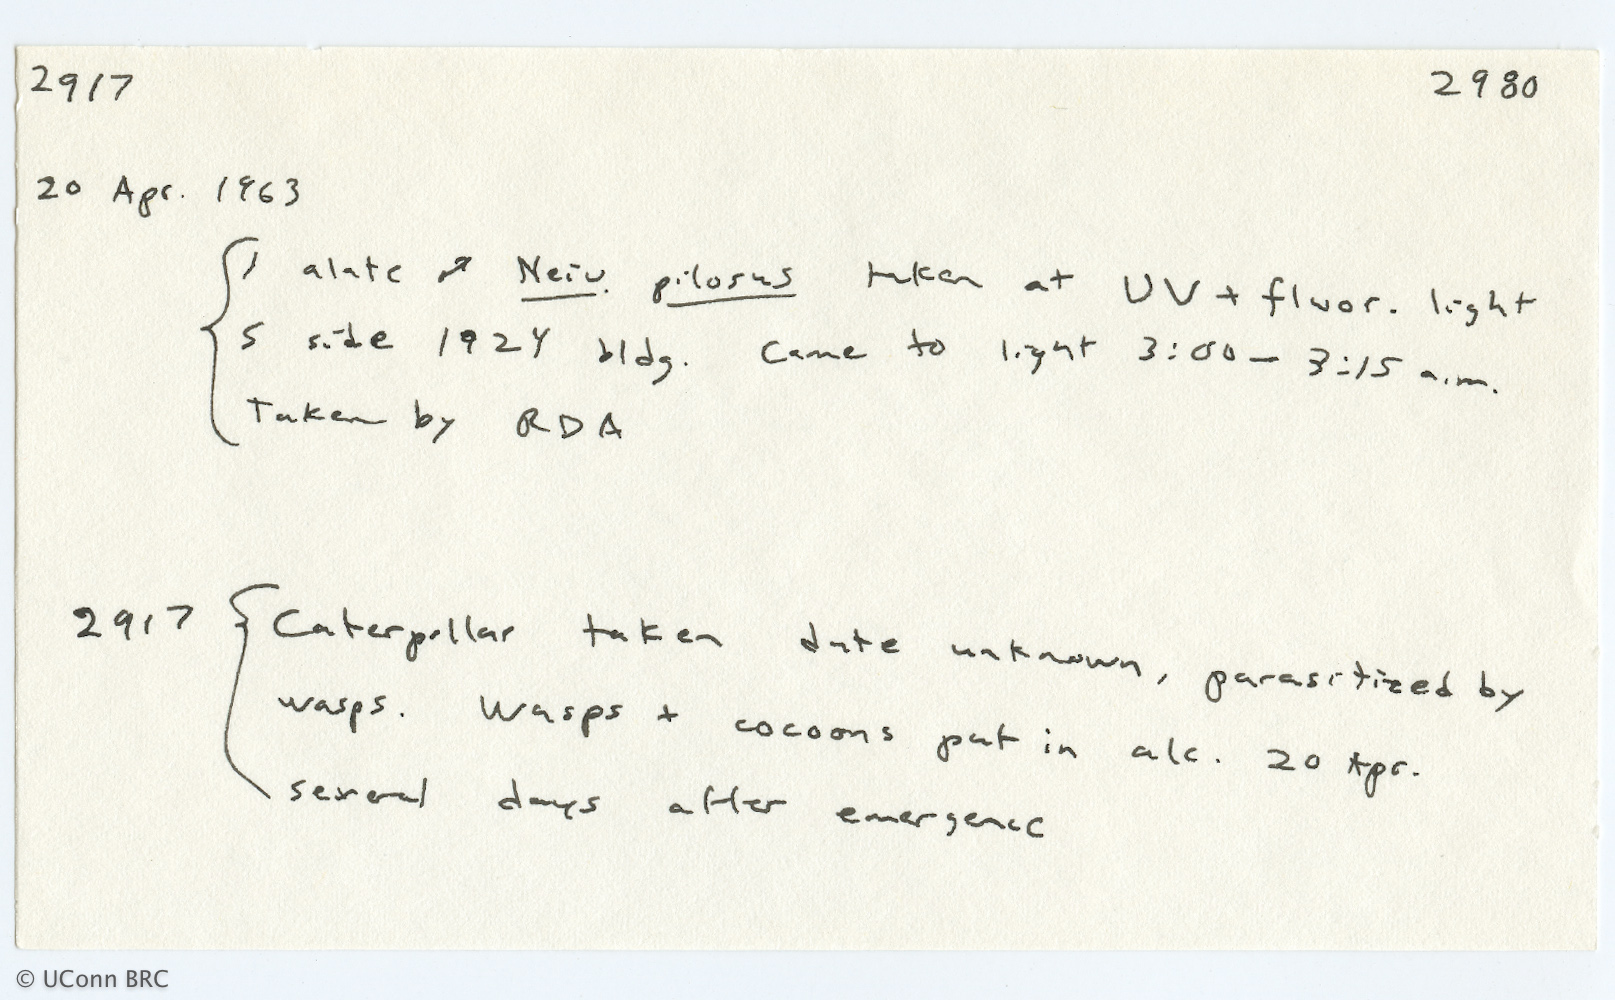 2917 2980
20 Apr. 1963
1 alate ♂ Neiv. pilosus taken at UV + fluor. light
S side 1924 bldg. Came to light 3:00 – 3:15 a.m.
Taken by RDA
2917 Caterpillar taken date unknown, parasitized by
wasps. Wasps + cocoons put in alc. 20 Apr.
several days after emergence
© UConn BRC